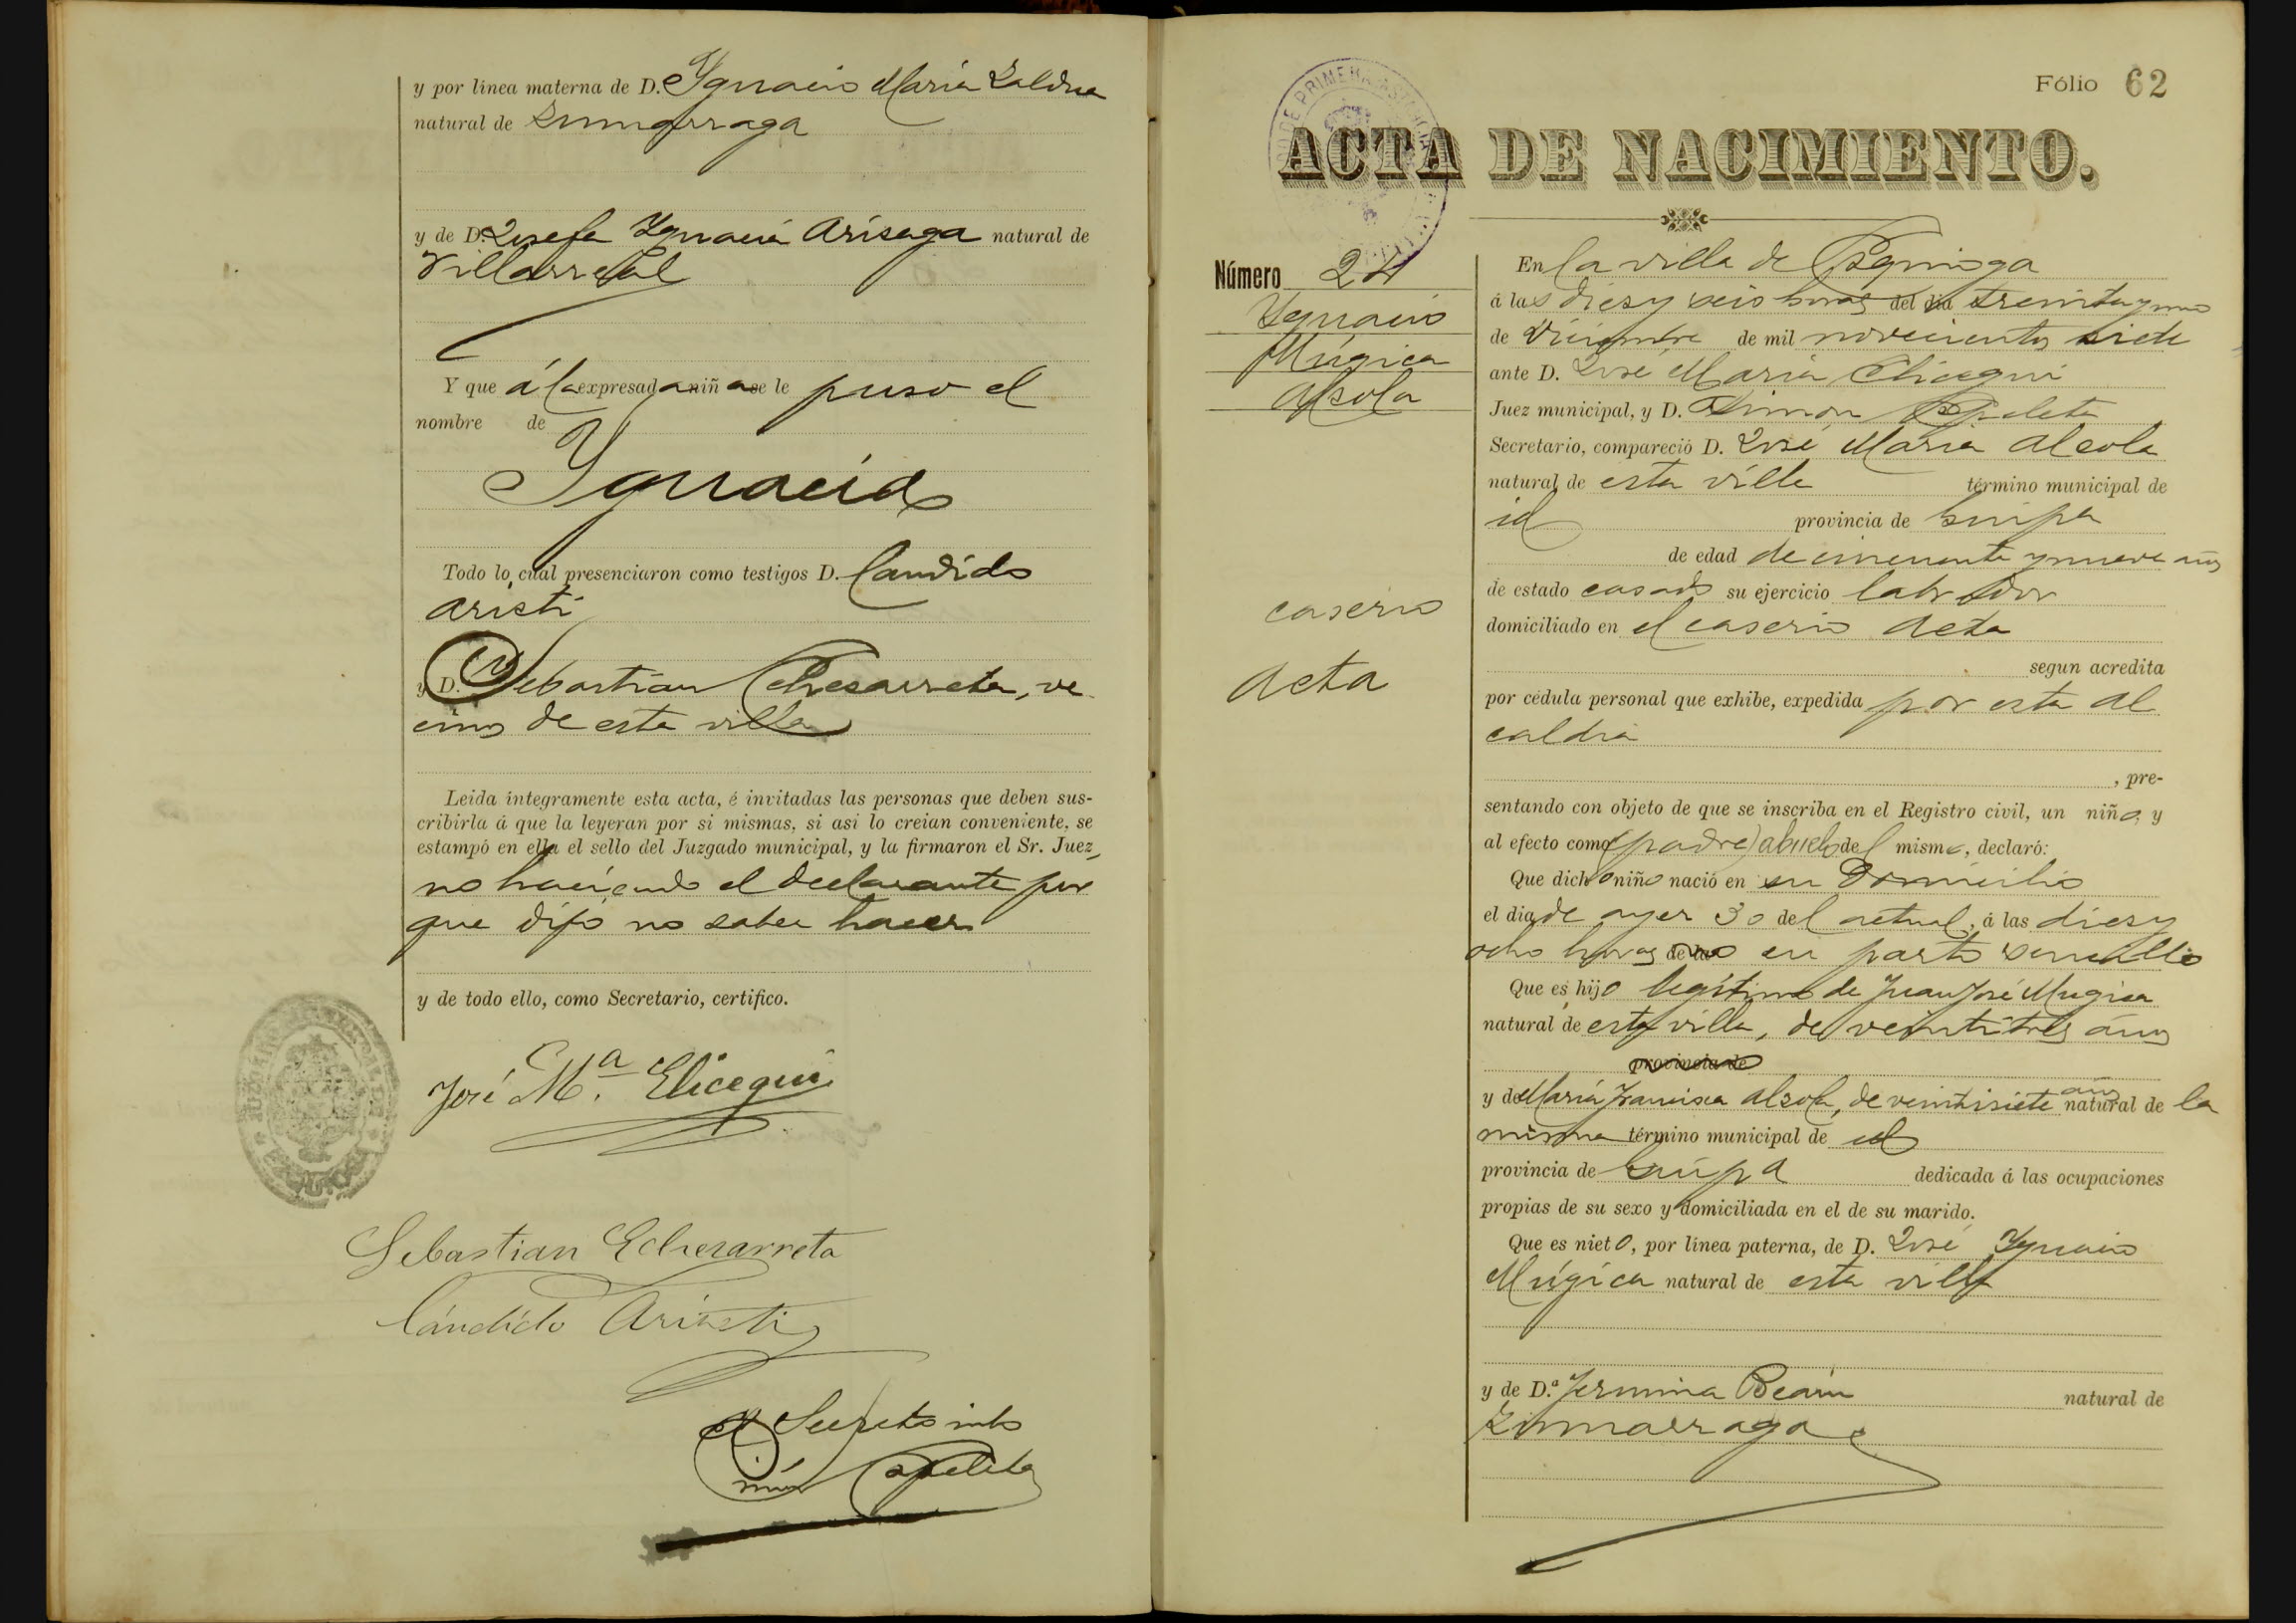 y por línea materna de D. Ygnacio María Zaldua
natural de Zumarraga
y de D.ª Josefa Ygnacia Arisaga natural de
Villarreal
Y que á la expresada niña se le puso el
nombre de
Ygnacia
Todo lo cual presenciaron como testigos D. Candido
Aristi
y D. Sebastian Echesarreta, ve
cinos de esta villa
Leida integramente esta acta, é invitadas las personas que deben sus-
cribirla á que la leyeran por si mismas, si asi lo creian conveniente, se
estampó en ella el sello del Juzgado municipal, y la firmaron el Sr. Juez,
no haciendo el declarante por
que dijo no saber hacer
y de todo ello, como Secretario, certifico.
José M.ª Elicegui
Sebastian Echezarreta
Cándido Aristi
Fólio 62
ACTA DE NACIMIENTO.
Número 24
Ygnacio
Múgica
Alsola
caserio
Acta
En la villa de
á las diez y seis horas del dia treinta y uno
de Diciembre de mil novecientos siete
ante D. José María Elicegui
Juez municipal, y D. Simon Apeleta
Secretario, compareció D. José María Alsola
natural de esta villa término municipal de
id provincia de Guipa
de edad de cincuenta y nueve años
de estado casado su ejercicio labrador
domiciliado en el caserio Acta
segun acredita
por cédula personal que exhibe, expedida por esta Al
caldia
, pre-
sentando con objeto de que se inscriba en el Registro civil, un niño, y
al efecto como (padre) abuelo del mismo, declaró:
Que dicho niño nació en su Domicilio
el dia de ayer 30 del actual, á las diez y
ocho horas de la en parto sencillo
Que es hijo legítimo de Juan José Mugica
natural de esta villa, de veintitres años
provincia de
y de María Francisca Alsola, de veintisiete años natural de la
misma término municipal de id
provincia de Guipa dedicada á las ocupaciones
propias de su sexo y domiciliada en el de su marido.
Que es nieto, por línea paterna, de D. José Ygnacio
Múgica natural de esta villa
y de D.ª Fermina Beain natural de
Zumarraga